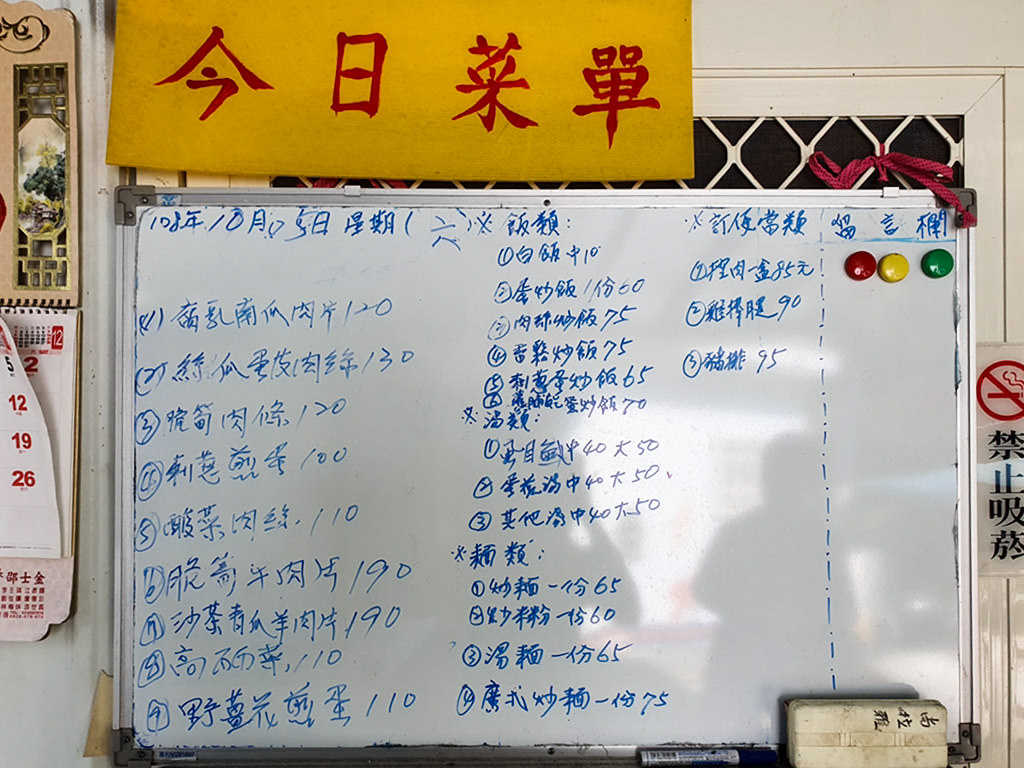 今日菜單
108年10月05日 星期(六)
(1) 腐乳南瓜肉片 120
(2) 絲瓜蛋皮肉絲 130
③ 脆筍肉絛 120
④ 刺蔥煎蛋 100
⑤ 酸菜肉絲 110
⑥ 脆筍牛肉片 190
⑦ 沙茶青瓜羊肉片 190
⑧ 高丽菜 110
⑨ 野薑花煎蛋 110
※ 飯類:
①白飯中10
②蛋炒飯1份60
③肉絲炒飯75
④香鬆炒飯75
⑤刺蔥蛋炒飯65
⑥ 蛋炒飯70
※湯類:
①虱目魚中40大50
②蛋花湯中40大50
③其他湯中40大50
※麵類:
①炒麵一份65
②炒米粉一份60
③湯麵一份65
④廣式炒麵一份75
※訂便當類
①控肉一盒85元
②雞棒腿90
③豬排95
留言欄
12
5
2
12
19
26
金士邵
禁止吸菸